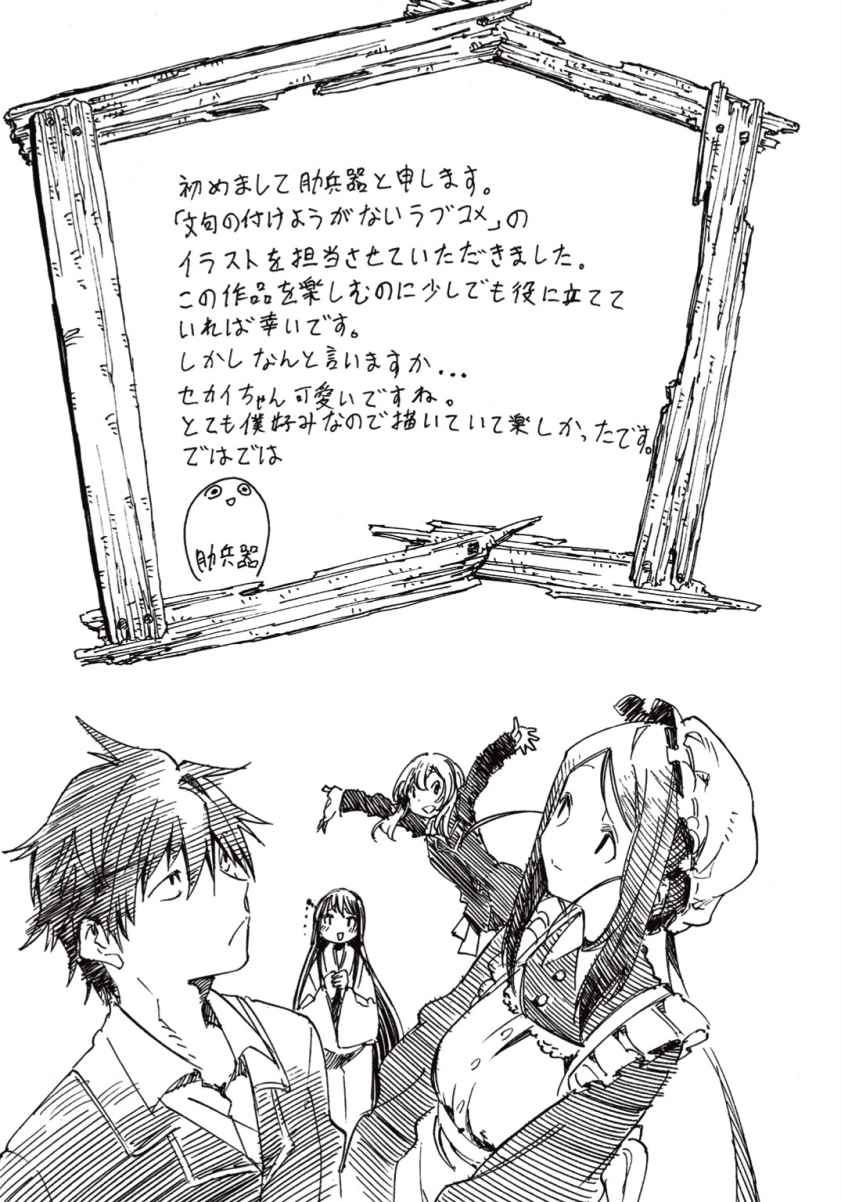 初めまして肋兵器と申します。
「文句の付けようがないラブコメ」の
イラストを担当させていただきました。
この作品を楽しむのに少しでも役に立てて
いれば幸いです。
しかしなんと言いますか...
セカイちゃん可愛いですね。
とても僕好みなので描いていて楽しかったです。
ではでは
肋兵器